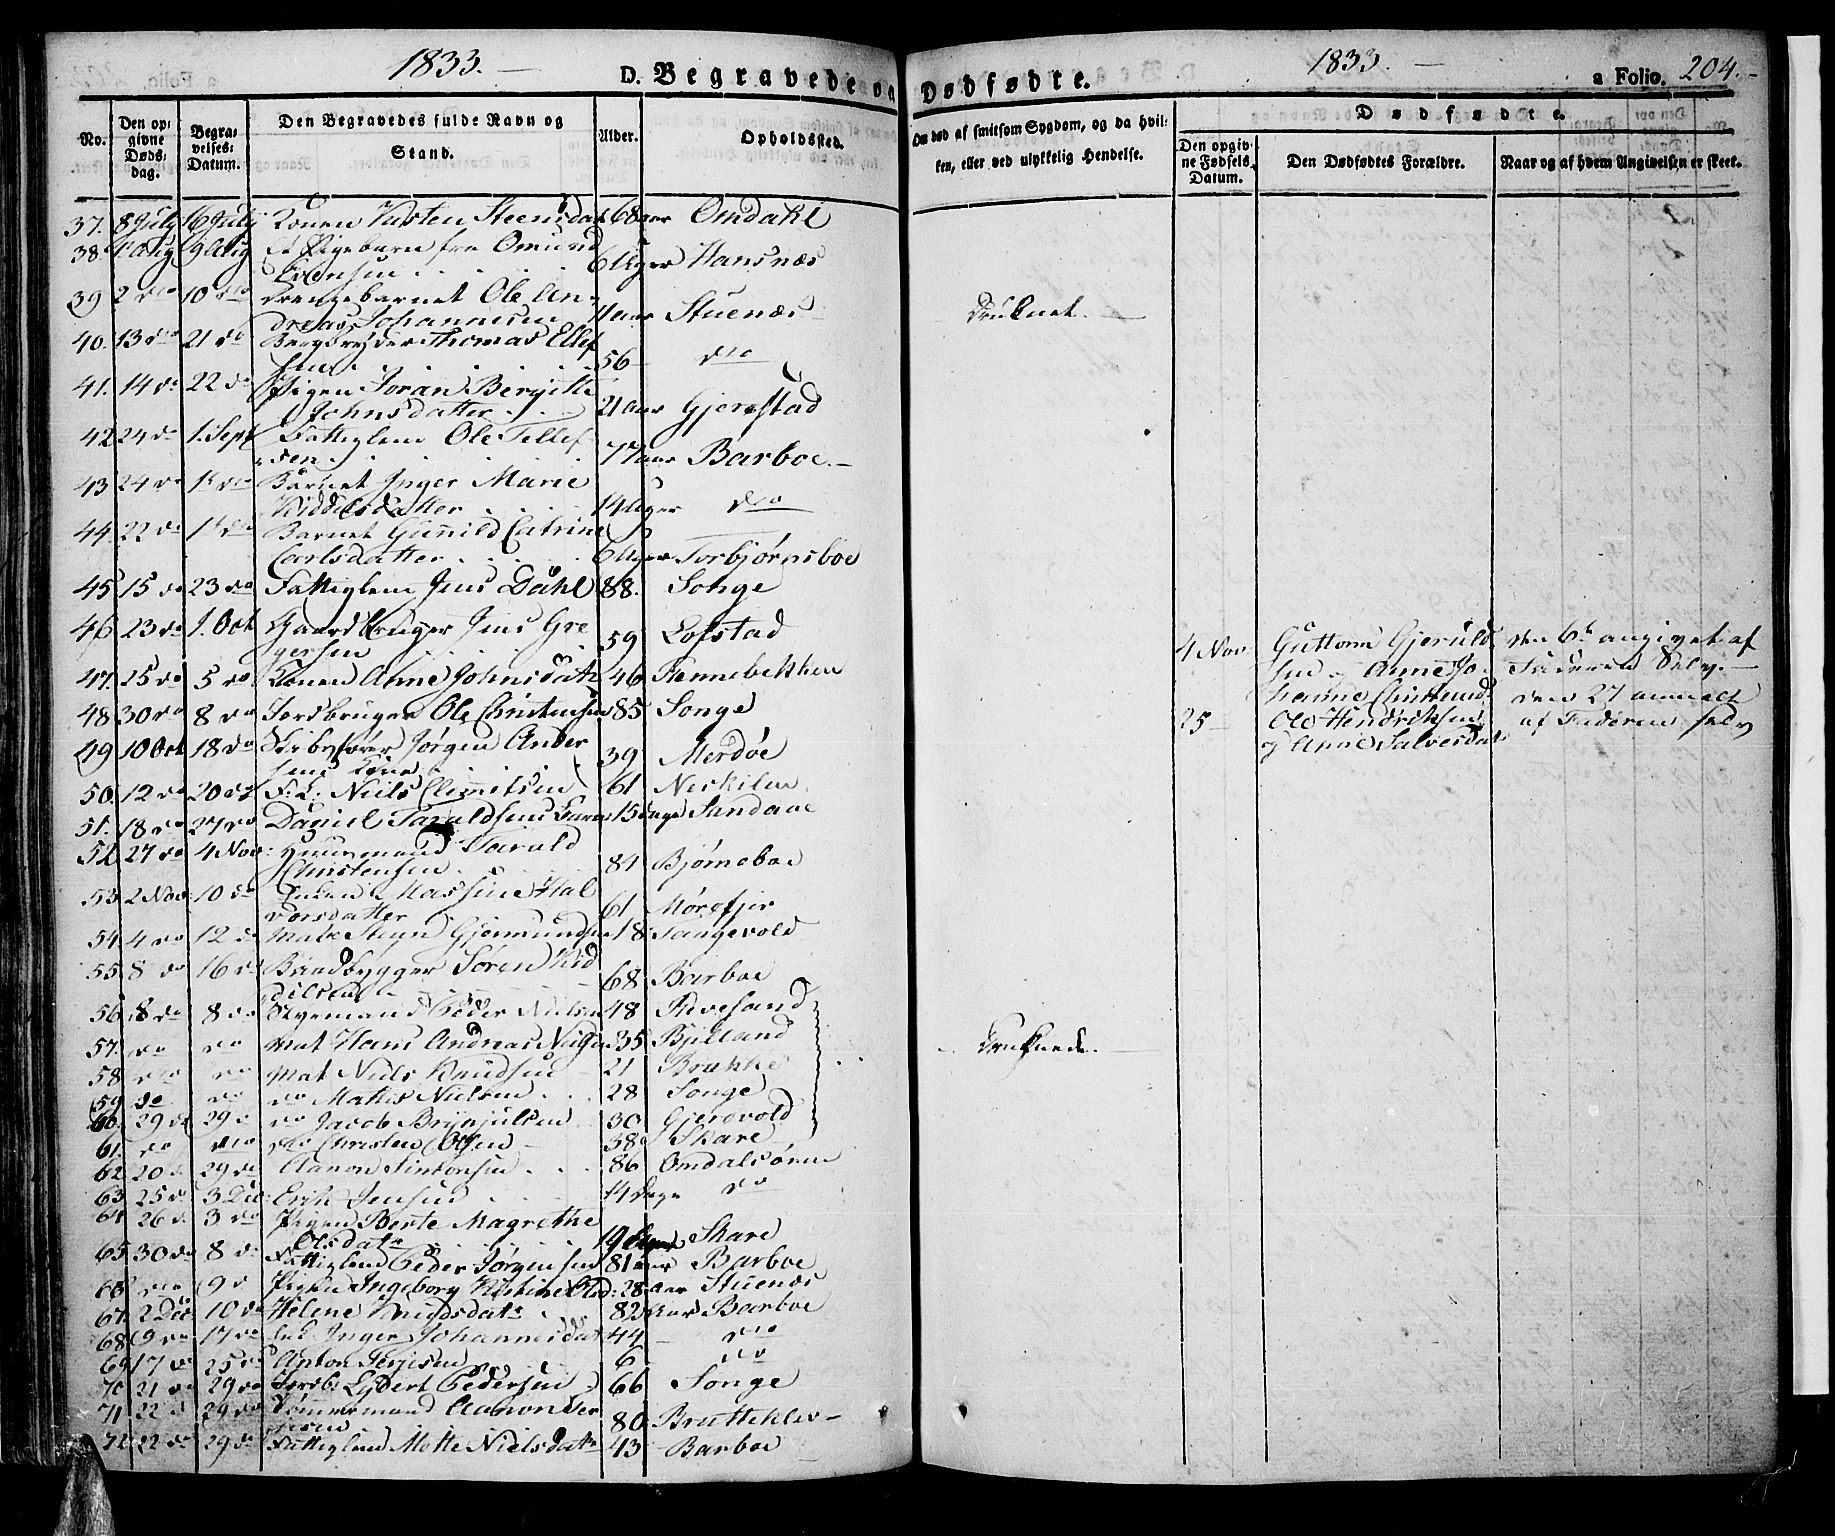 1833.
D. Begravede og
Dødfødte.
1833.
a Folio. 204.
No.
Den opgivne Dødsdag.
Begravelses-Datum.
Den Begravedes fulde Navn og Stand.
Alder.
Opholdssted.
Om død af smitsom Sygdom, og da hvilken, eller ved ulykkelig Hendelse.
Dødfødte.
Den opgivne Fødsels Datum.
Den Dødfødtes Forældre.
Naar og af hvem Angivelsen er skeet.
37. 8 July 16 July Konen Kirsten Steensdat 68 aar Omdahl
38. 1 Aug 9 Aug et Pigebarn fra Omund
Evensen 6 Uger Hansnæs
39 2 do 10 do Drengebarnet Ole An-
dreas Johannesen 11 aar Stuenæs Druknet.
40. 13 do 21 do Thomas Ellef
sen 56 do
41. 14 do 22 do Pigen Joran Bergitte
Johnsdatter 21 aar Gjerestad
42 24 do 1. Sept Fattiglem Ole Tellef
sen 77 aar Barboe
43 24 do 1 do Barnet Inger Marie
Kiddelsdatter 14 Uger do
44. 22 do 1 do Barnet Gunnild Catrine
Carlsdatter 6 Uger Torbjørnsboe
45 15 do 23 do Fattiglem Jens Dahl 88. Songe
46 23 do 1. Oct Gaardbruger Jens Gre
gersen 59 Lofstad
47. 25 do 5 do Konen Anne Johnsdatr 46
48 30 do 8 do Jordbruger Ole Christensen 85 Songe
49 10 Oct 18 do Jørgen Ander
sens Kone 39 Merdøe
50. 12 do 20 do F. L. Niels Clemmetsen 61 Neskilen
51. 18 do 27 do Daniel Taraldsens 15 Dage Sandaae
52 27 do 4 Nov Huusmand Tarald
Christensen 84 Bjørneboe
53 2 Nov 10 do Enken Massine Hal
vorsdatter 61 Mørefjer
54 4 do 12 do Gjermundsen 18 Tangevold
55 8 do 16 do Baadbygger Søren Kid
dilsen 68 Barboe
56 8 do 8 do Styrmand Peder Nielsen 48
57. do do Mat Hans Andreas 35 Bjelland Druknede.
58 do do Mat Niels Knudsen 21 Brække
59 do do do Mathis Nielsen 28 Songe
60. 29 do 29 do Jacob Brynjulsen 30 Gjervold
61. do do do Christen Olsen 38 Skare
62 20 do 29 do Aanon Simonsen 86 Omdalsøren
63 25 do 3 Dec Erik Jensen 14 Dage do
64 26 do 3 do Pigen Berte Magrethe
Olsdatr 19 Skare
65 30 do 8 do Fattiglem Peder Jørgensen 81 aar Barboe
66 do 9 do Pigen Ingeborg Kirstine Olsd: 28 aar Stuenæs
67. 2 Dec 10 do Helene Knudsdatr 82 Aar Barboe
68 9 do 17 do Enk. Inger Johannesdat 44 do
69 17 do 25 do Anton Terjesen 6 do
70 21 do 29 do Jordb: Lydert Pedersen 66 Songe
71 22 do 29 do Tømmermand Aanon Ter
jesen 80 Bratteklev
72 22 do 29 do Fattiglem Mette Nielsdatr 43 Barboe
4 Nov Guttorm Gjeruld den 6te angivet af
sen Anne Jo- Faderen selv.
hanne den 27 anmeldt
25 Ole Hendriksen af Faderen selv
og Anne Salvesdat